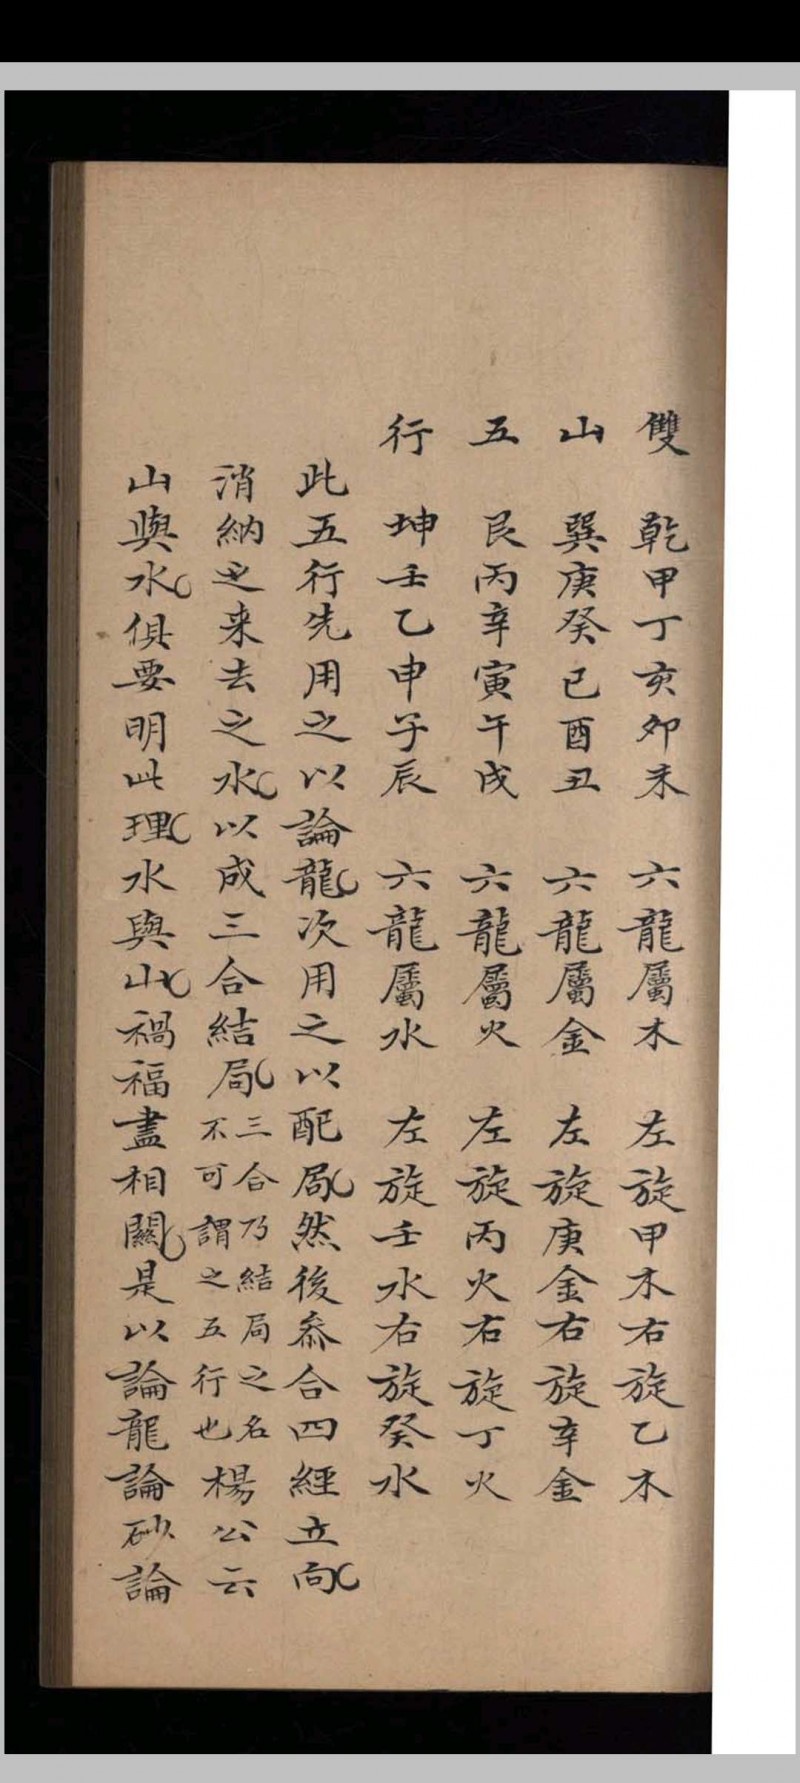 雙　乾甲丁亥卯未　六龍屬木　左旋甲木右旋乙木
山　巽庚癸巳酉丑　六龍屬金　左旋庚金右旋辛金
五　艮丙辛寅午戌　六龍屬火　左旋丙火右旋丁火
行　坤壬乙申子辰　六龍屬水　左旋壬水右旋癸水
此五行先用之以論龍次用之以配局然後叅合四經立向
消納之来去之水以成三合結局三合乃結局之名不可謂之五行也楊公云
山與水俱要明此理水與山禍福盡相關是以論龍論砂論